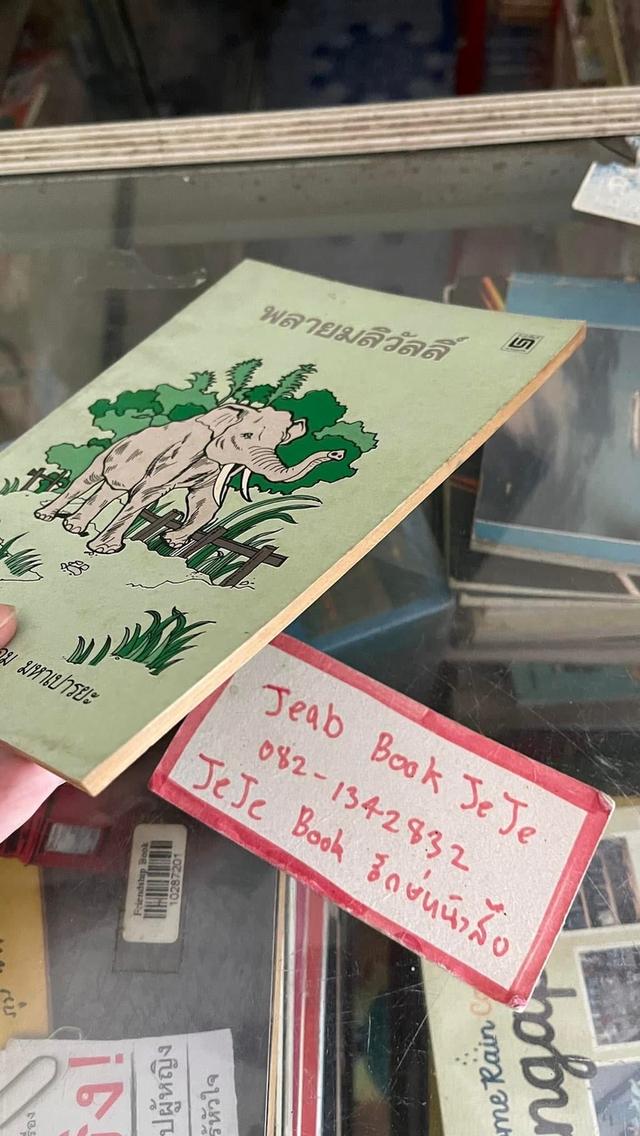 พลายมลิวัลลิ์
มหาปารยะ
Jeab Book JeJe
082-1342832
JeJe Book
Friendship Book
10287201
ปผู้หญิง
รู้หัวใจ
ome Rain
ngap